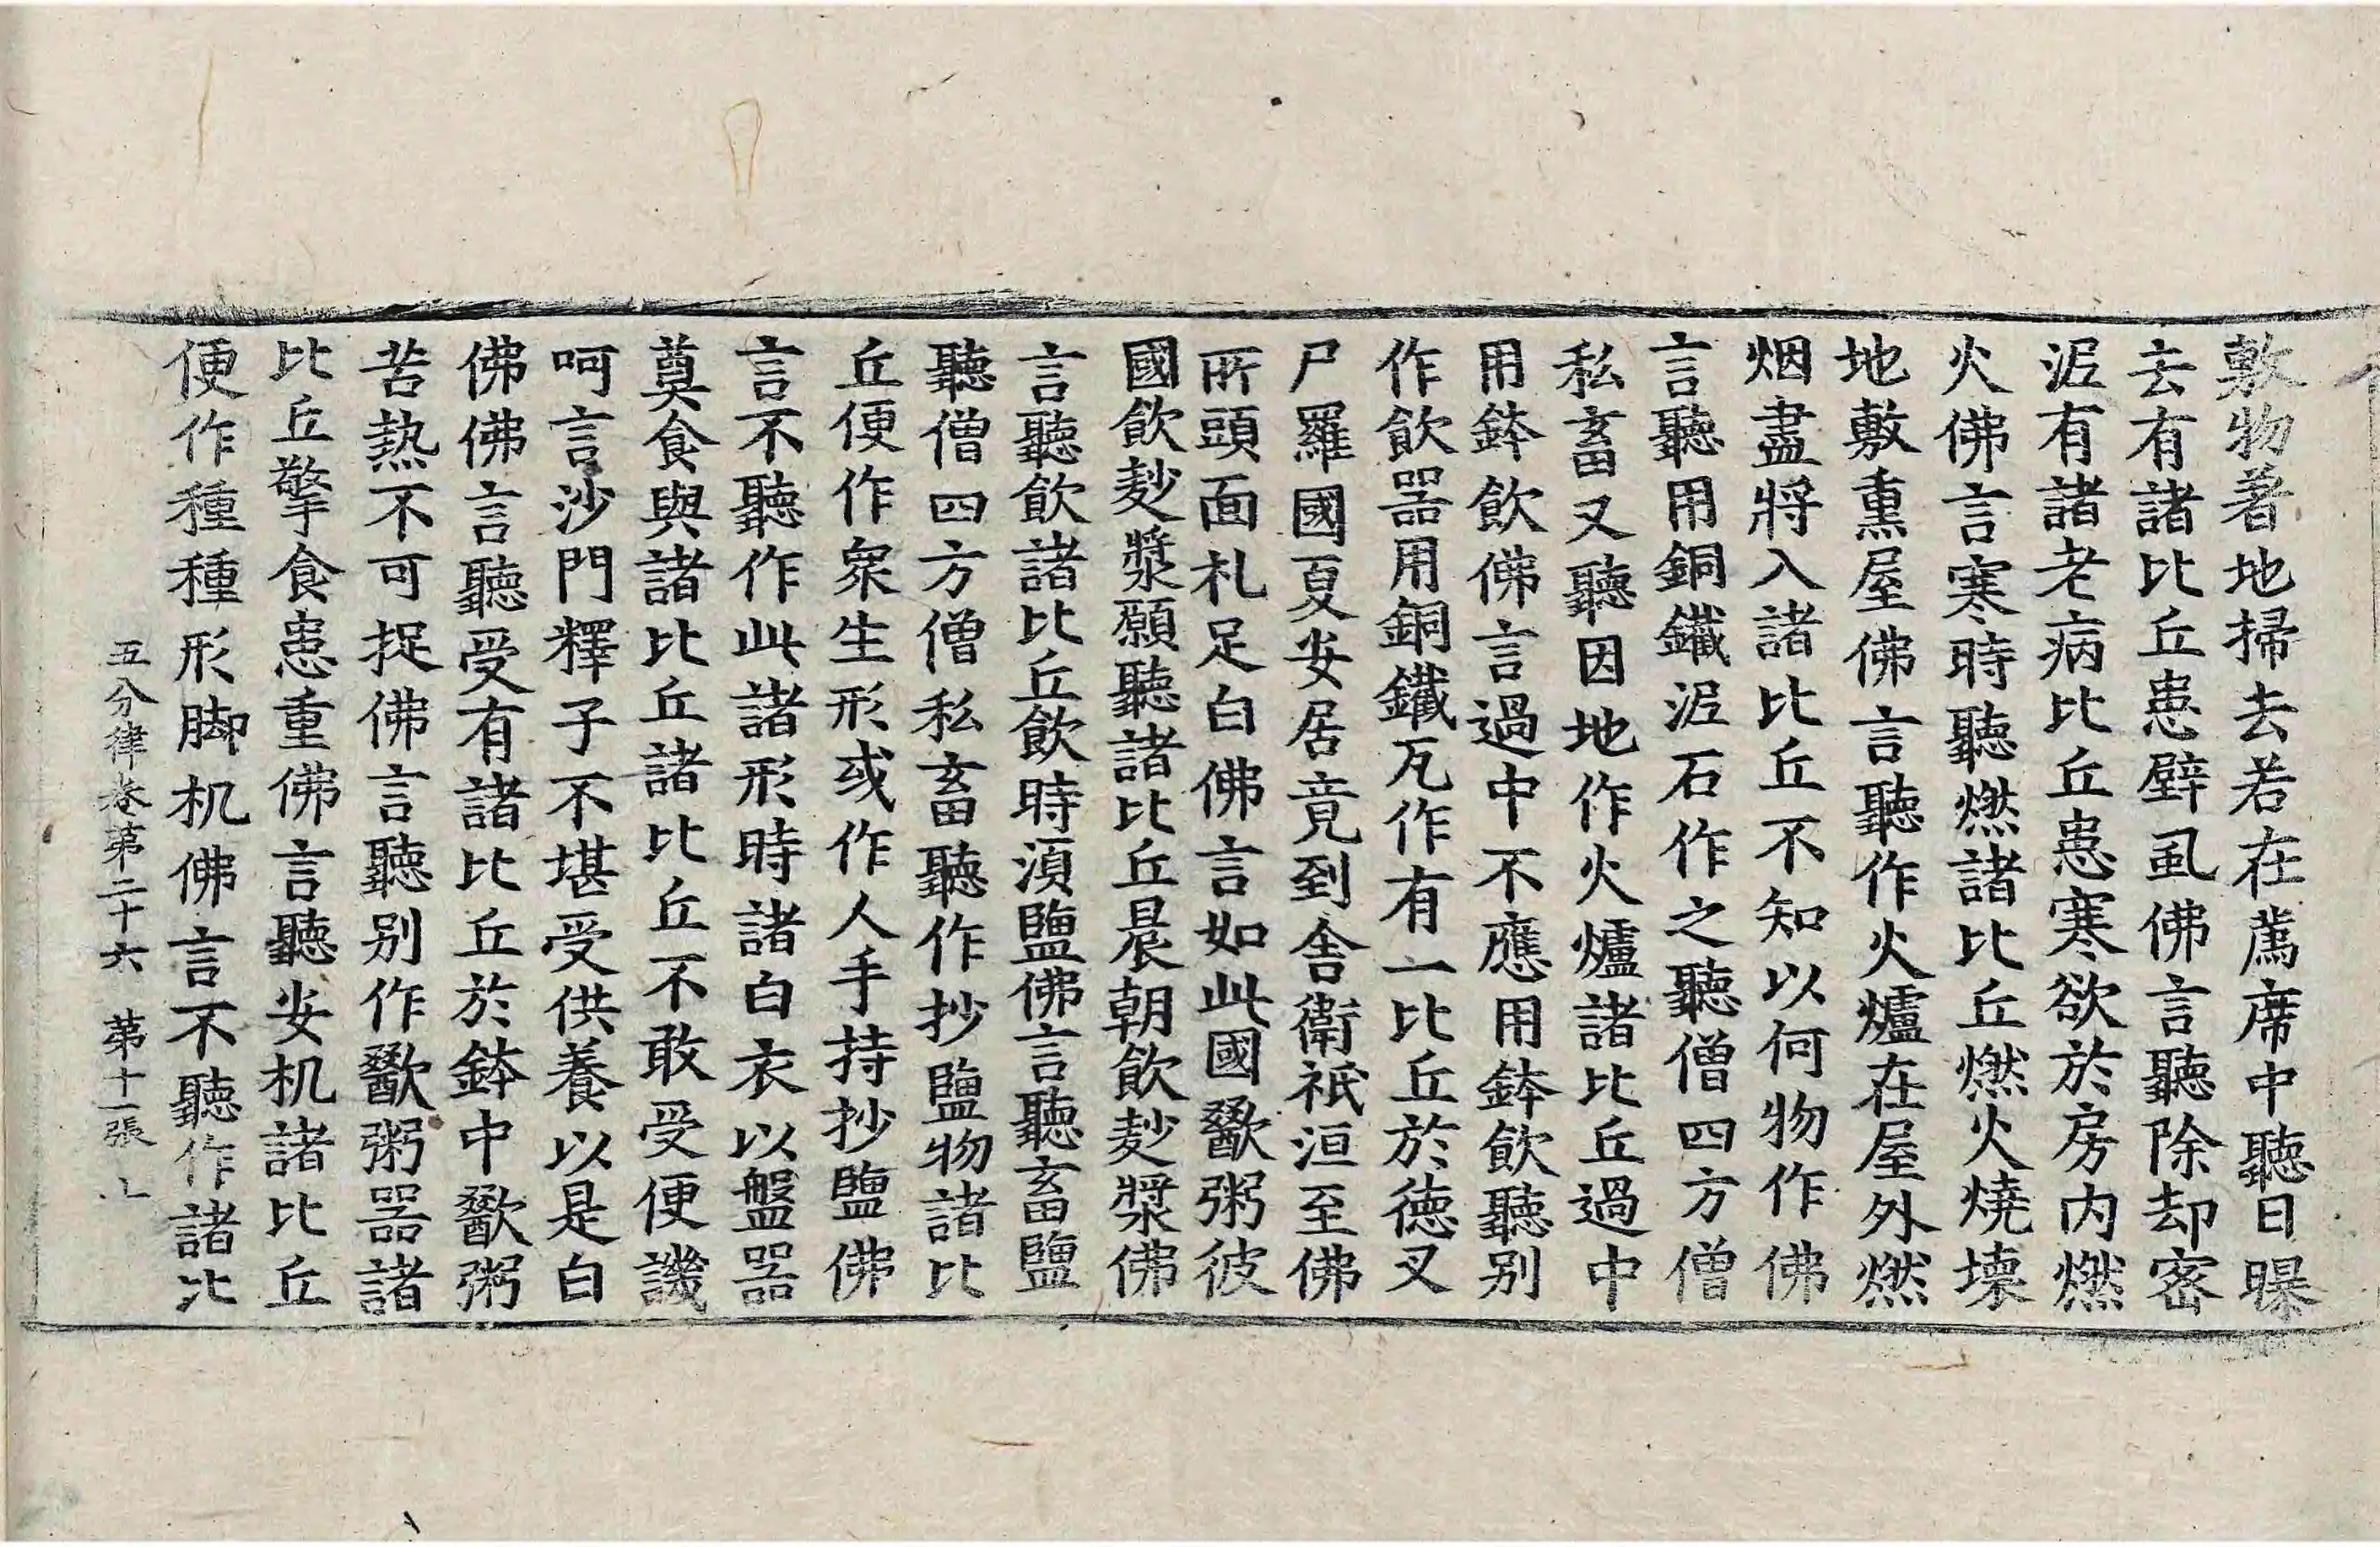 敷物著地掃去若在薦席中聽日曝
去有諸比丘患壁虱佛言聽除却密
泥有諸老病比丘患寒欲於房内燃
火佛言寒時聽燃諸比丘燃火燒壞
地敷熏屋佛言聽作火爐在屋外燃
烟盡將入諸比丘不知以何物作佛
言聽用銅鐵泥石作之聽僧四方僧
私畜又聽因地作火爐諸比丘過中
用鉢飲佛言過中不應用鉢飲聽別
作飲器用銅鐵瓦作有一比丘於德叉
尸羅國夏安居竟到舍衛祇洹至佛
所頭面札足白佛言如此國歠粥彼
國飲麨漿願聽諸比丘晨朝飲麨漿佛
言聽飲諸比丘飲時湏鹽佛言聽畜鹽
聽僧四方僧私畜聽作抄鹽物諸比
丘便作衆生形或作人手持抄鹽佛
言不聽作此諸形時諸白衣以盤器
奠食與諸比丘諸比丘不敢受便譏
呵言沙門釋子不堪受供養以是白
佛佛言聽受有諸比丘於鉢中歠粥
苦熱不可捉佛言聽別作歠粥器諸
比丘擎食患重佛言聽安机諸比丘
便作種種形脚机佛言不聽作諸比
五分律卷第二十六 第十一張